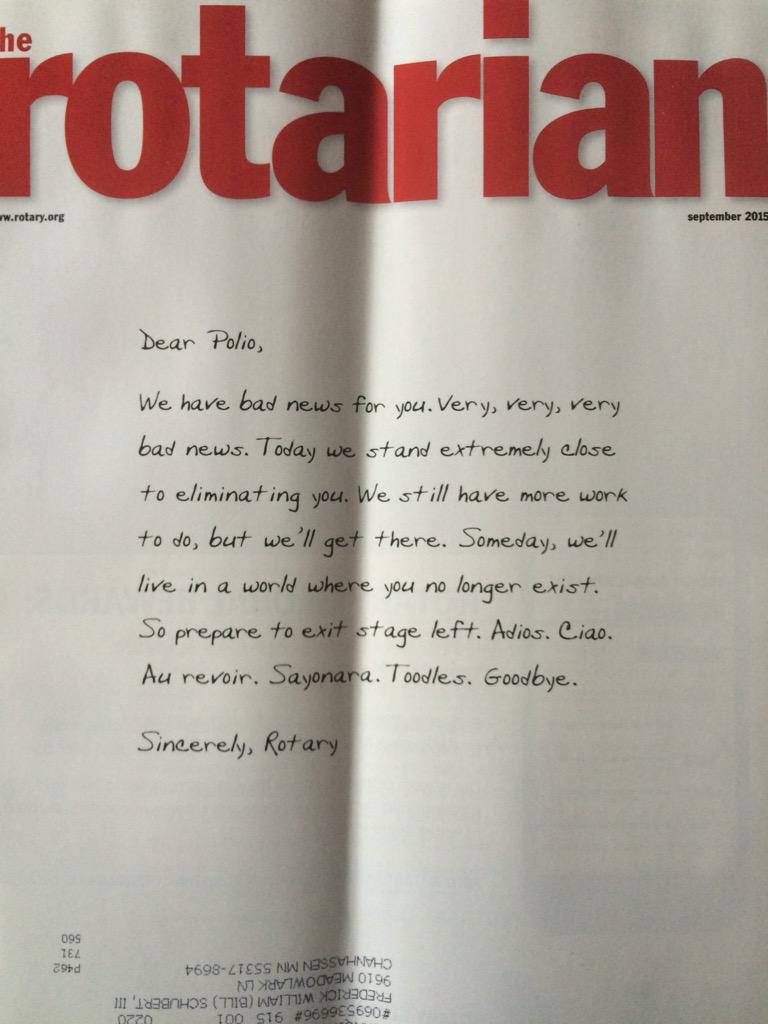 he
rotarian
ww.rotary.org
september 2015
Dear Polio,
We have bad news for you. Very, very, very
bad news. Today we stand extremely close
to eliminating you. We still have more work
to do, but we'll get there. Someday, we'll
live in a world where you no longer exist.
So prepare to exit stage left. Adios. Ciao.
Au revoir. Sayonara. Toodles. Goodbye.
Sincerely, Rotary
#069536696# 915 001 0220
FREDERICK WILLIAM (BILL) SCHUBERT, III
9610 MEADOWLARK LN
CHANHASSEN MN 55317-8694
P462
731
560